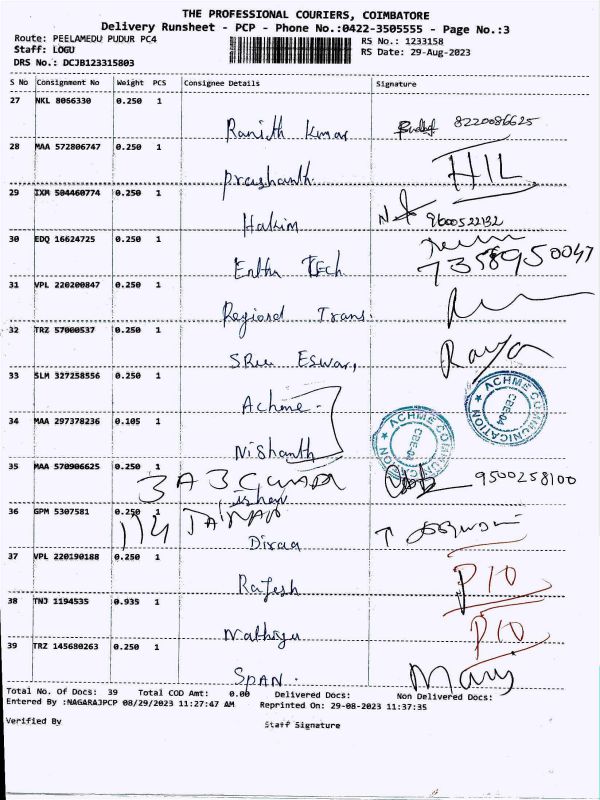 THE PROFESSIONAL COURIERS, COIMBATORE
Delivery Runsheet - PCP - Phone No.:0422-3505555 - Page No.:3
Route: PEELAMEDU PUDUR PC4
RS No.: 1233158
Staff: LOGU
RS Date: 29-Aug-2023
DRS No.: DCJB123315803
S No Consignment No Weight PCS Consignee Details Signature
27 NKL 8066330 0.250 1
Ranith Kumar 8220086625
28 MAA 572806747 0.250 1
Prashanth. HIL
29 IXM 504460774 0.250 1
Hakim 9600522132
30 EDQ 16624725 0.250 1
Enthu TECh 7358950047
31 VPL 220200847 0.250 1
Regional Trans.
32 TRZ 57000537 0.250 1
SRee Eswar, Raya
33 SLM 327258556 0.250 1
Achme - ACHME COMMUNICATION CBE-04
34 MAA 297378236 0.105 1
Nishanth ACHME COMMUNICATION CBE-04
35 MAA 570906625 0.250 1
3 A 3 9500258100
36 GPM 5307581 0.250 1
114
37 VPL 220190188 0.250 1
Rajesh P10
38 TNJ 1194535 0.935 1
P10
39 TRZ 145680263 0.250 1
SPAN. Mary
Total No. Of Docs: 39 Total COD Amt: 0.00 Delivered Docs: Non Delivered Docs:
Entered By :NAGARAJPCP 08/29/2023 11:27:47 AM Reprinted On: 29-08-2023 11:37:35
Verified By Staff Signature